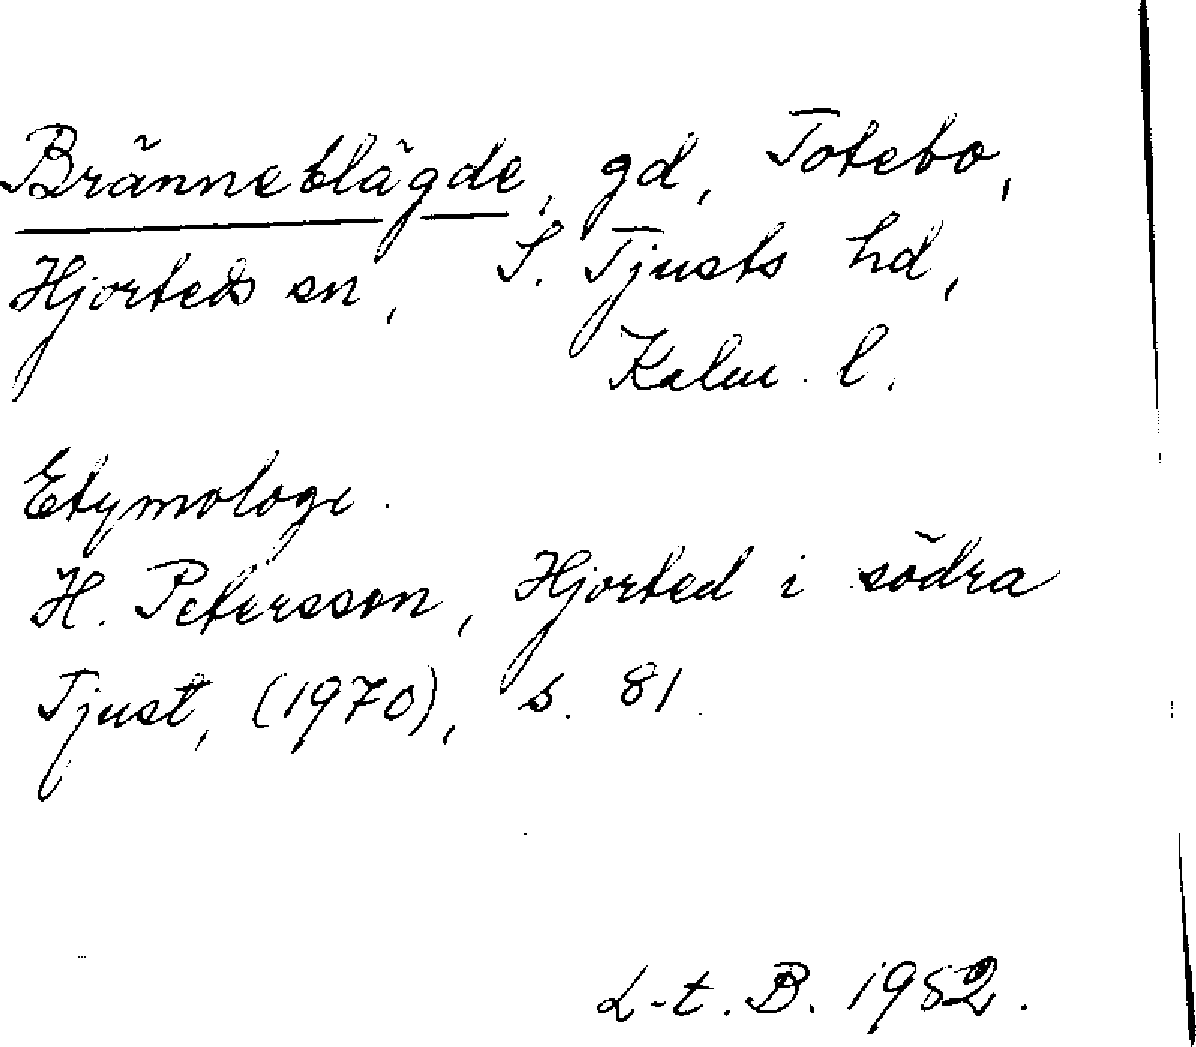 Bränneblägde, gd, Totebo,
Hjorteds sn, S. Tjusts hd,
Kalm. l.
Etymologi.
H. Petersson, Hjorted i södra
Tjust, (1970), s. 81.
L-t. B. 1982.